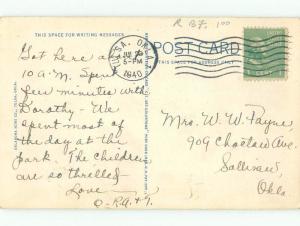 THIS SPACE FOR WRITING MESSAGES
POST CARD
TULSA, OKLA.
5-PM
1940
R BF. 1.00
Got here at
10 a.m. Spent
few minutes with
Dorothy - We
spent most of
the day at the
park. The children
are so thrilled
Love
O-R.G. & Y.
Mrs. W. W. Payne,
909 Choctaw Ave.
Sallisaw,
Okla